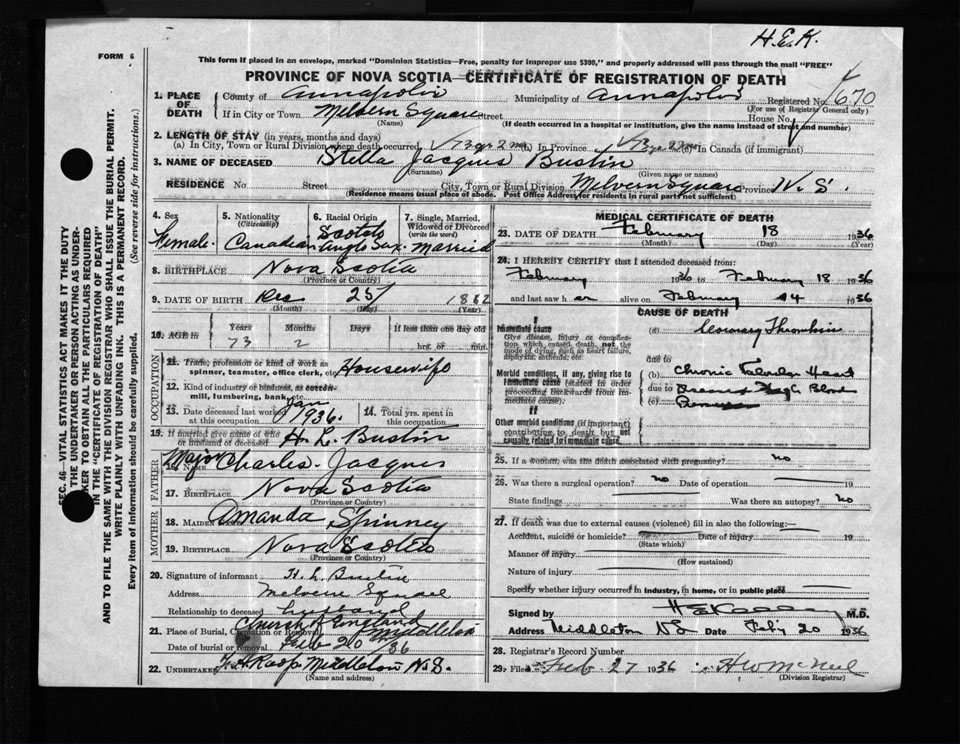 H.E.K.
FORM 6
This form if placed in an envelope, marked "Dominion Statistics—Free, penalty for improper use $300," and properly addressed will pass through the mail "FREE"
PROVINCE OF NOVA SCOTIA—CERTIFICATE OF REGISTRATION OF DEATH
1. PLACE OF DEATH County of Annapolis Municipality of Annapolis Registered No. 670
(For use of Registrar General only)
If in City or Town Melvern Square Street House No.
(Name) (If death occurred in a hospital or institution, give the name instead of street and number)
2. LENGTH OF STAY (in years, months and days)
(a) In City, Town or Rural Division where death occurred 73 yr 2 mo (b) In Province 73 yr 2 mo (c) In Canada (if immigrant)
3. NAME OF DECEASED Stella Jacques Bustin
(Surname) (Given name or names)
RESIDENCE No. Street City, Town or Rural Division Melvern Square Province N.S.
(Residence means usual place of abode. Post Office Address for residents in rural parts not sufficient)
4. Sex Female
5. Nationality (Citizenship) Canadian
6. Racial Origin Scotch Anglo Sax.
7. Single, Married, Widowed or Divorced (write the word) Married
8. BIRTHPLACE Nova Scotia
(Province or Country)
9. DATE OF BIRTH Dec 25 1862
(Month) (Day) (Year)
10. AGE IN Years Months Days If less than one day old
73 2 hrs. or min.
OCCUPATION
11. Trade, profession or kind of work as spinner, teamster, office clerk, etc. Housewife
12. Kind of industry or business, as cotton-mill, lumbering, bank, etc.
13. Date deceased last worked at this occupation Jan 1936.
14. Total yrs. spent in this occupation
15. If married give name of wife or husband of deceased H. L. Bustin
FATHER
16. Name Major Charles Jacques
17. Birthplace Nova Scotia
(Province or Country)
MOTHER
18. MAIDEN Amanda Spinney
19. BIRTHPLACE Nova Scotia
(Province or Country)
20. Signature of informant H. L. Bustin
Address Melvern Square
Relationship to deceased husband
21. Place of Burial, Cremation or Removal Church of England Middleton
Date of burial or removal Feb 20 /36
22. Undertaker Middleton N.S.
(Name and address)
MEDICAL CERTIFICATE OF DEATH
23. DATE OF DEATH February 18 1936
(Month) (Day) (Year)
24. I HEREBY CERTIFY that I attended deceased from:
February 1936 to February 18 1936
and last saw her alive on February 14 1936
CAUSE OF DEATH
Immediate cause
Give disease, injury or complication which caused death, not the mode of dying, such as heart failure, asphyxia, asthenia, etc.
(a) Coronary Thrombosis
due to
Morbid conditions, if any, giving rise to immediate cause (stated in order proceeding backwards from immediate cause).
(b) Chronic Heart
due to Blood
(c)
II
Other morbid conditions (if important) contributing to death but not causally related to immediate cause.
25. If a woman, was the death associated with pregnancy? no
26. Was there a surgical operation? no Date of operation 19
State findings Was there an autopsy? No
27. If death was due to external causes (violence) fill in also the following:
Accident, suicide or homicide? Date of injury 19
(State which)
Manner of injury
(How sustained)
Nature of injury
Specify whether injury occurred in industry, in home, or in public place
Signed by H E Kelley M.D.
Address Middleton NS Date Feby 20 1936
28. Registrar's Record Number
29. Filed Feb. 27 1936 H W McNeil
(Division Registrar)
SEC. 46—VITAL STATISTICS ACT MAKES IT THE DUTY
OF THE UNDERTAKER OR PERSON ACTING AS UNDER-
TAKER TO OBTAIN ALL THE PARTICULARS REQUIRED
IN THE "CERTIFICATE OF REGISTRATION OF DEATH"
AND TO FILE THE SAME WITH THE DIVISION REGISTRAR WHO SHALL ISSUE THE BURIAL PERMIT.
WRITE PLAINLY WITH UNFADING INK. THIS IS A PERMANENT RECORD.
Every item of information should be carefully supplied. (See reverse side for instructions.)